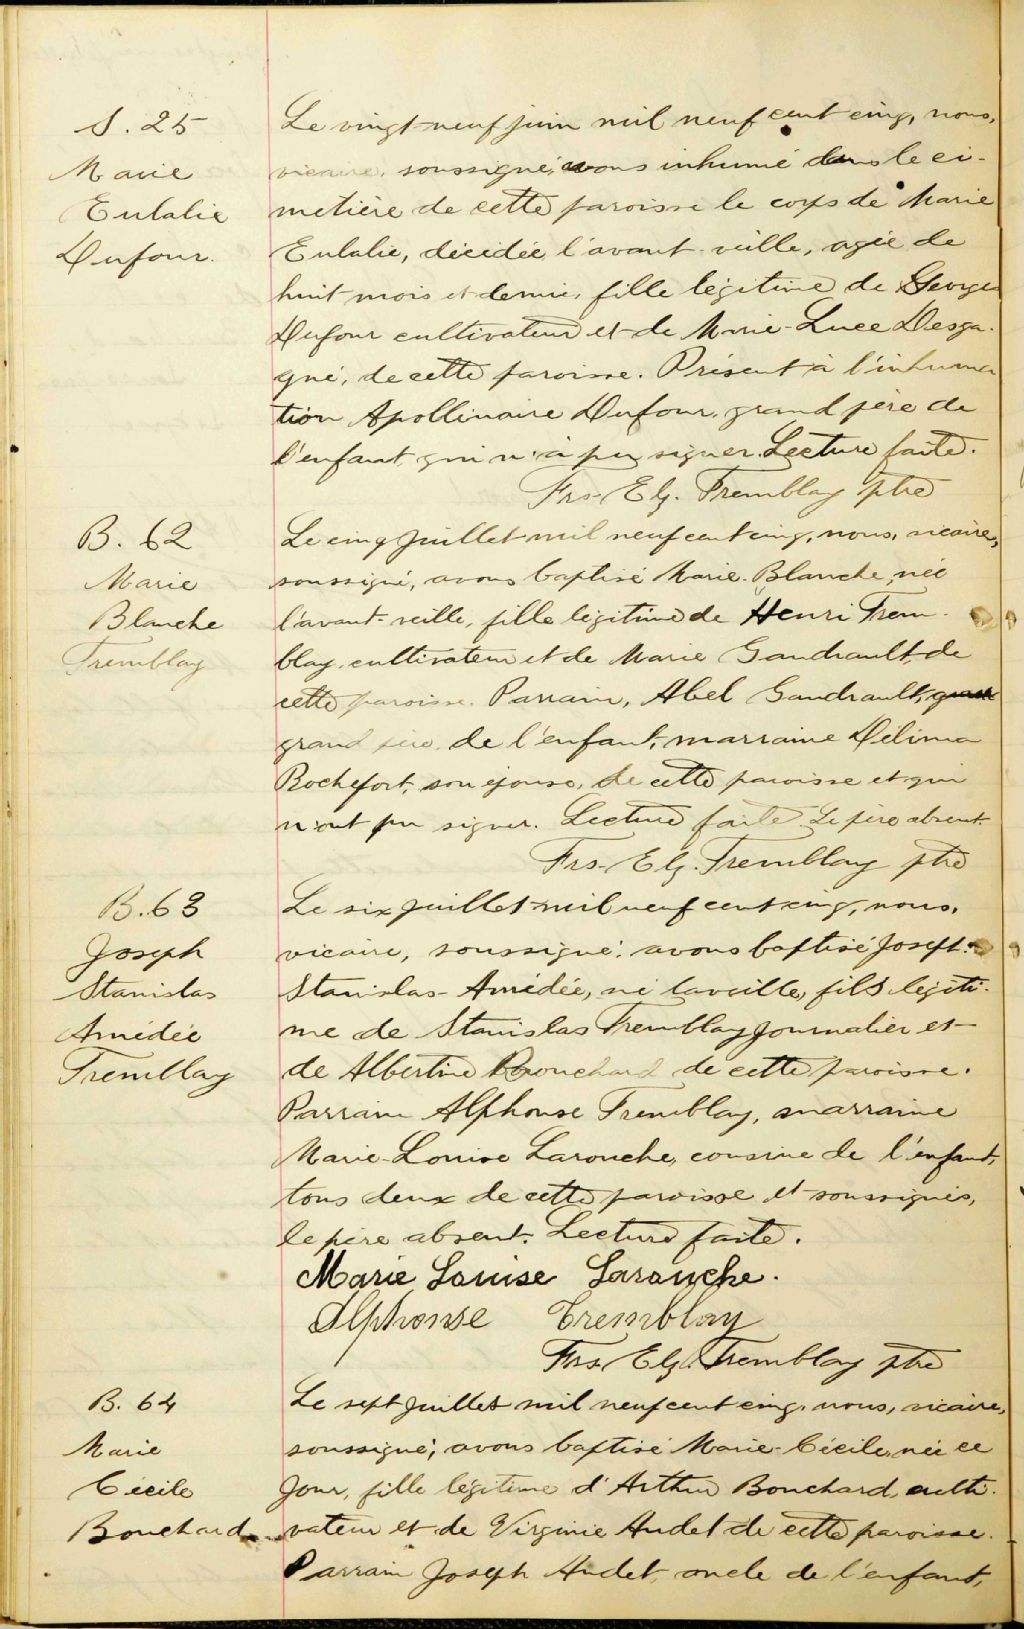 S. 25
Marie
Eulalie
Dufour.
Le vingt-neuf juin mil neuf cent cinq, nous,
vicaire, soussigné, avons inhumé dans le ci-
metière de cette paroisse le corps de Marie
Eulalie, décédée l'avant-veille, agée de
huit mois et demie, fille légitime de Georges
Dufour cultivateur et de Marie-Luce Desga-
gné, de cette paroisse. Présent à l'inhuma
tion Apollinaire Dufour, grand père de
l'enfant, qui n'a pu signer. Lecture faite.
Frs-Elz. Tremblay ptre
B. 62
Marie
Blanche
Tremblay
Le cinq juillet mil neuf cent cinq, nous, vicaire,
soussigné, avons baptisé Marie-Blanche, née
l'avant-veille, fille légitime de Henri Trem-
blay, cultivateur et de Marie Gaudrault, de
cette paroisse. Parrain, Abel Gaudrault,
grand père, de l'enfant, marraine Délima
Rochefort, son épouse, de cette paroisse et qui
n'ont pu signer. Lecture faite. Le père absent.
Frs-Elz. Tremblay ptre
B. 63
Joseph
Stanislas
Amédée
Tremblay
Le six juillet mil neuf cent cinq, nous,
vicaire, soussigné, avons baptisé Joseph-
Stanislas-Amédée, né la veille, fils légiti-
me de Stanislas Tremblay journalier et
de Albertine Bouchard de cette paroisse.
Parrain Alphonse Tremblay, marraine
Marie-Louise Larouche, cousine de l'enfant,
tous deux de cette paroisse et soussignés,
le père absent. Lecture faite.
Marie Louise Larouche.
Alphonse Tremblay
Frs. Elz. Tremblay ptre
B. 64
Marie
Cécile
Bouchard
Le sept juillet mil neuf cent cinq, nous, vicaire,
soussigné, avons baptisé Marie-Cécile, née ce
jour, fille légitime d'Arthur Bouchard, culti-
vateur et de Virginie Audet de cette paroisse.
Parrain Joseph Audet, oncle de l'enfant,